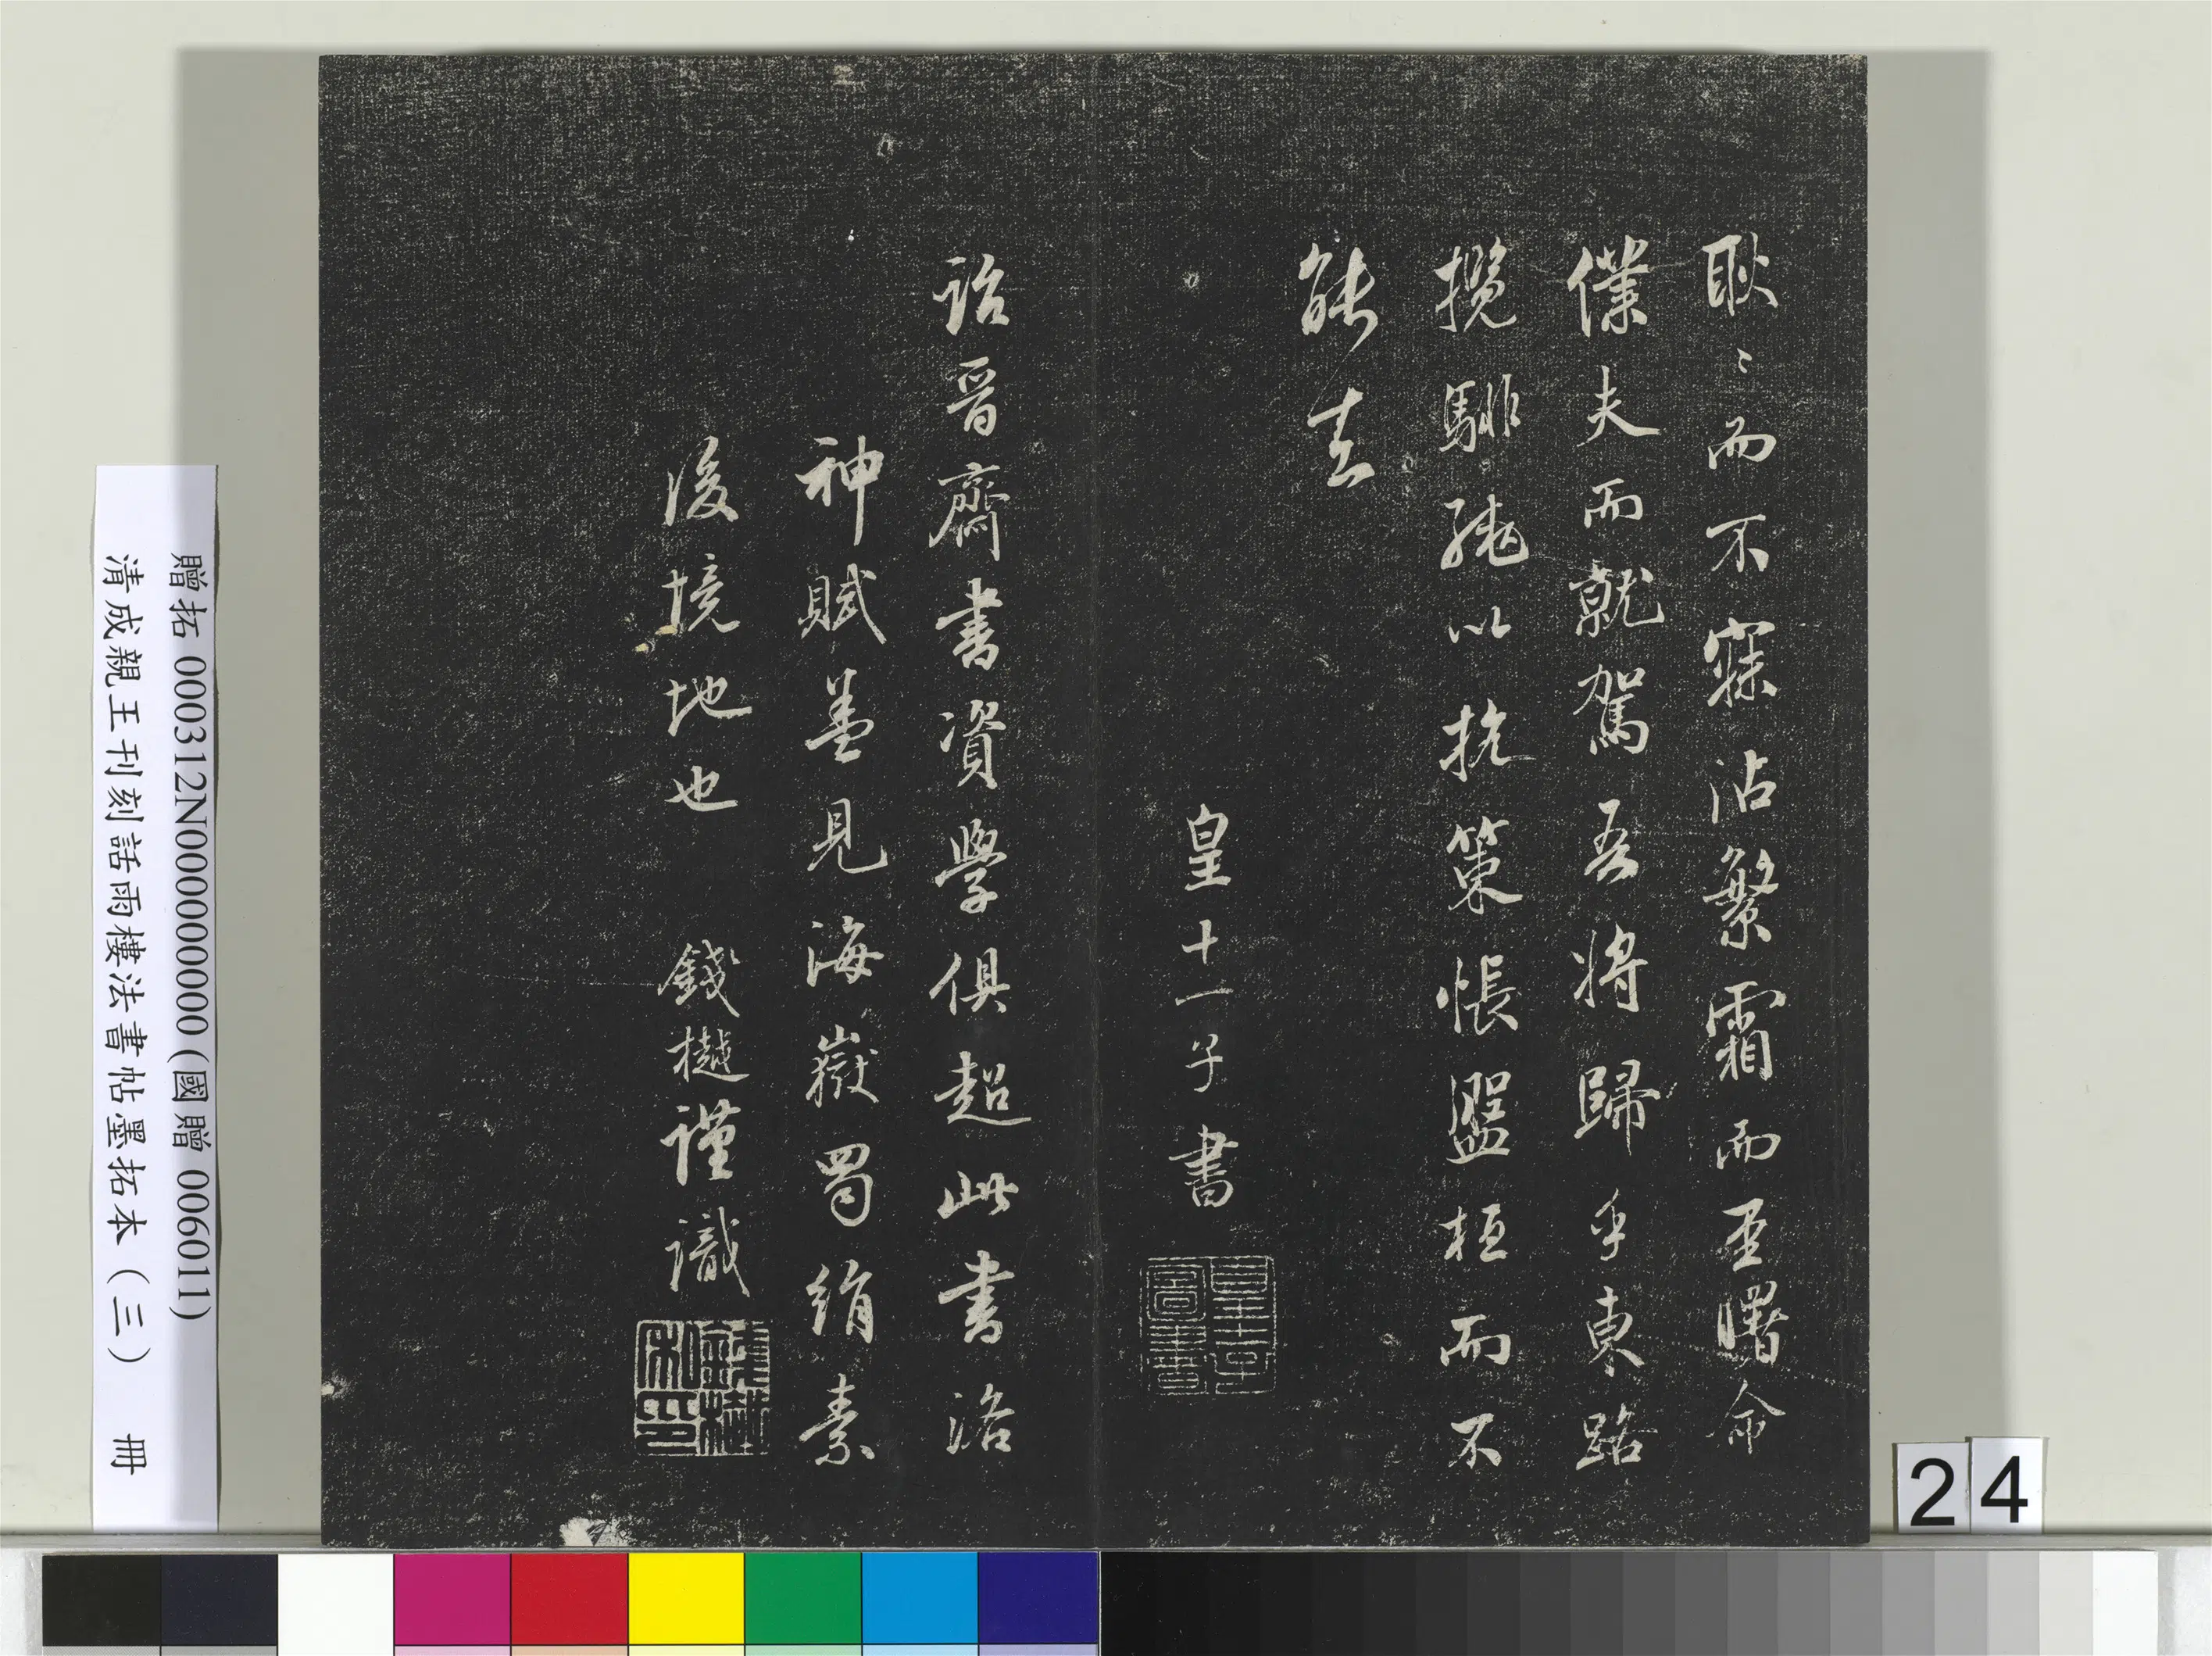 耿〻而不寐沾繁霜而至曙命
僕夫而就駕吾将歸乎東路
攬騑轡以抗策悵盤桓而不
能去
皇十一子書
皇十一子圖書
詒晉齋書資學俱超此書洛
神賦並見海嶽蜀絹素
後境地也 錢樾謹識
錢樾私印
贈拓 000312N000000000 (國贈 006011)
清成親王刊刻話雨樓法書帖墨拓本（三） 冊
24